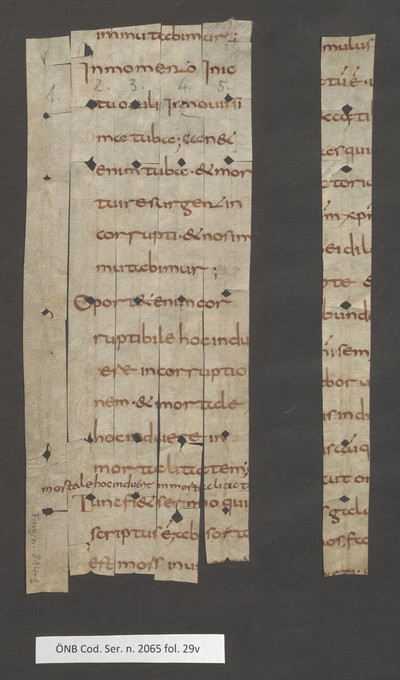 inmutabimur;
In momento In ic
tu oculi In novissi
ma tuba; canet
enim tuba · & mor
tui resurgent in
corrupti · & nos im
mutabimur;
Oport& enim cor
ruptibile hoc indu
ere incorruptio
nem · & mortale
hoc induere in
mortalitatem;
mortale hoc induerit inmortalitate
Tunc fi& sermo qui
scriptus
est mors in
1.
2.
3.
4.
5.
mulus
tú é ·
es qui
toria
m xpi
ei dil
bund
isem
bor
us in d
ut on
ÖNB Cod. Ser. n. 2065 fol. 29v